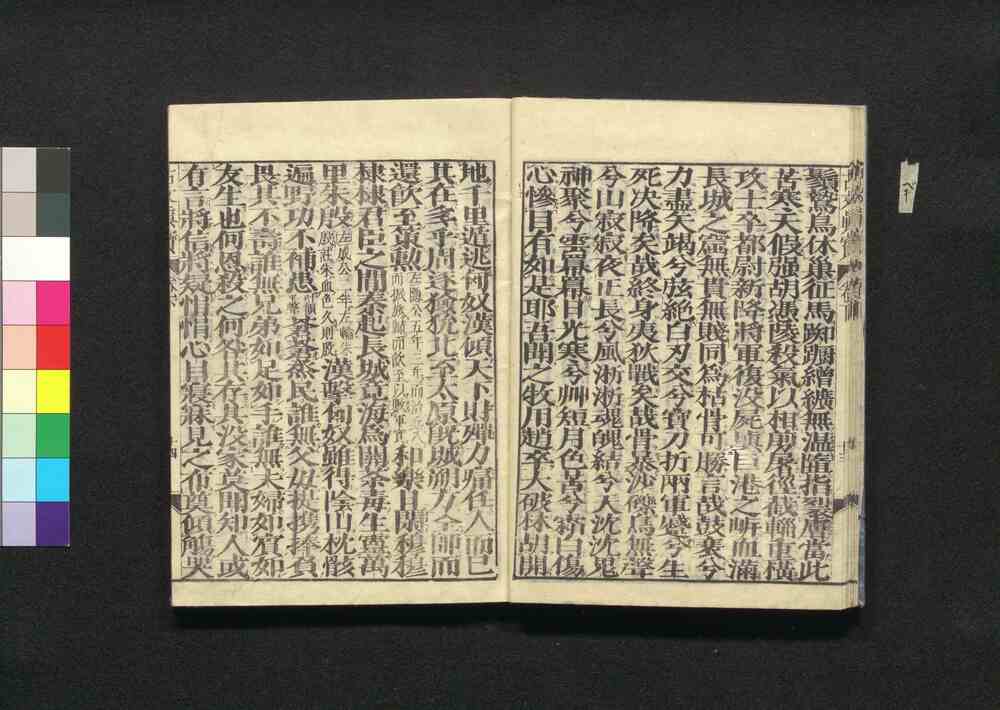 鬚鷙鳥休巢征馬踟蹰繒纊無温墮指裂膚當此
苦寒天假强胡憑陵殺氣以相剪屠徑截輜重橫
攻士卒都尉新降將軍復没屍塡巨港之岸血滿
長城之窟無貴無賤同爲枯骨可勝言哉鼓衰兮
力盡矢竭兮弦絶白刃交兮寶刀折兩軍蹙兮生
死决降矣哉終身夷狄戰矣哉骨暴沙礫鳥無聲
兮山寂寂夜正長兮風淅淅魂魄結兮天沈沈鬼
神聚兮雲冪冪日光寒兮艸短月色苦兮霜白傷
心慘目有如是耶吾聞之牧用趙卒大破林胡開
地千里遁逃匈奴漢傾天下財殫力痡任人而已
其在多乎周逐玁狁北至太原旣城朔方全師而
還飮至策勳 和樂且閑穆穆
棣棣君臣之間秦起長城竟海爲關荼毒生靈萬
里朱殷 漢擊匈奴雖得陰山枕骸
遍野功不補患 蒼蒼蒸民誰無父母提携捧負
畏其不壽誰無兄弟如足如手誰無夫婦如賓如
友生也何恩殺之何咎其存其没家莫聞知人或
有言將信將疑悁悁心目寢寐見之布奠傾觴哭